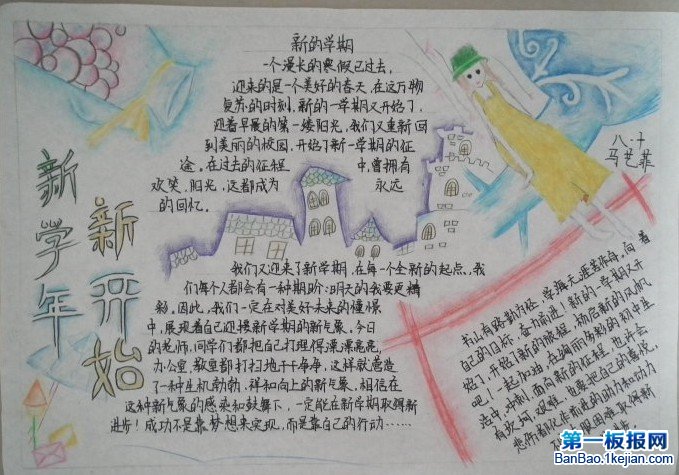 新的学期
一个漫长的寒假已过去,
迎来的是一个美好的春天,在这万物
复苏的时刻,新的一学期又开始了,
迎着早晨的第一缕阳光,我们又重新回
到美丽的校园,开始了新一学期的征
途。在过去的征程中,曾拥有
欢笑,阳光,这都成为永远
的回忆。
八、十
马艺菲
新学年
新开始
我们又迎来了新学期,在每一个全新的起点,我
们每个人都会有一种期盼:明天的我要更精
彩。因此,我们一定在对美好未来的憧憬
中,展现着自己迎接新学期的新气象,今日
的老师,同学们都把自己打理得漂漂亮亮,
办公室,教室都打扫地干干净净,这样就营造
了一种生机勃勃,祥和向上的新气象,相信在
这种新气象的感染和鼓舞下,一定能在新学期取得新
进步!成功不是靠梦想来实现,而是靠自己的行动……
书山有路勤为径,学海无涯苦作舟,向着
自己的目标,奋力前进!新的一学期又开
始了,开始了新的旅程,扬起新的风帆
吧!一起加油,在绚丽多彩的初中生
活中,冲刺,面向新的征程,也许会
有坎坷,艰难,也要把自己的喜悦,
悲伤都化在前进的动力和动力
服困难取得新
第一板报网
BanBao.1kejian.com